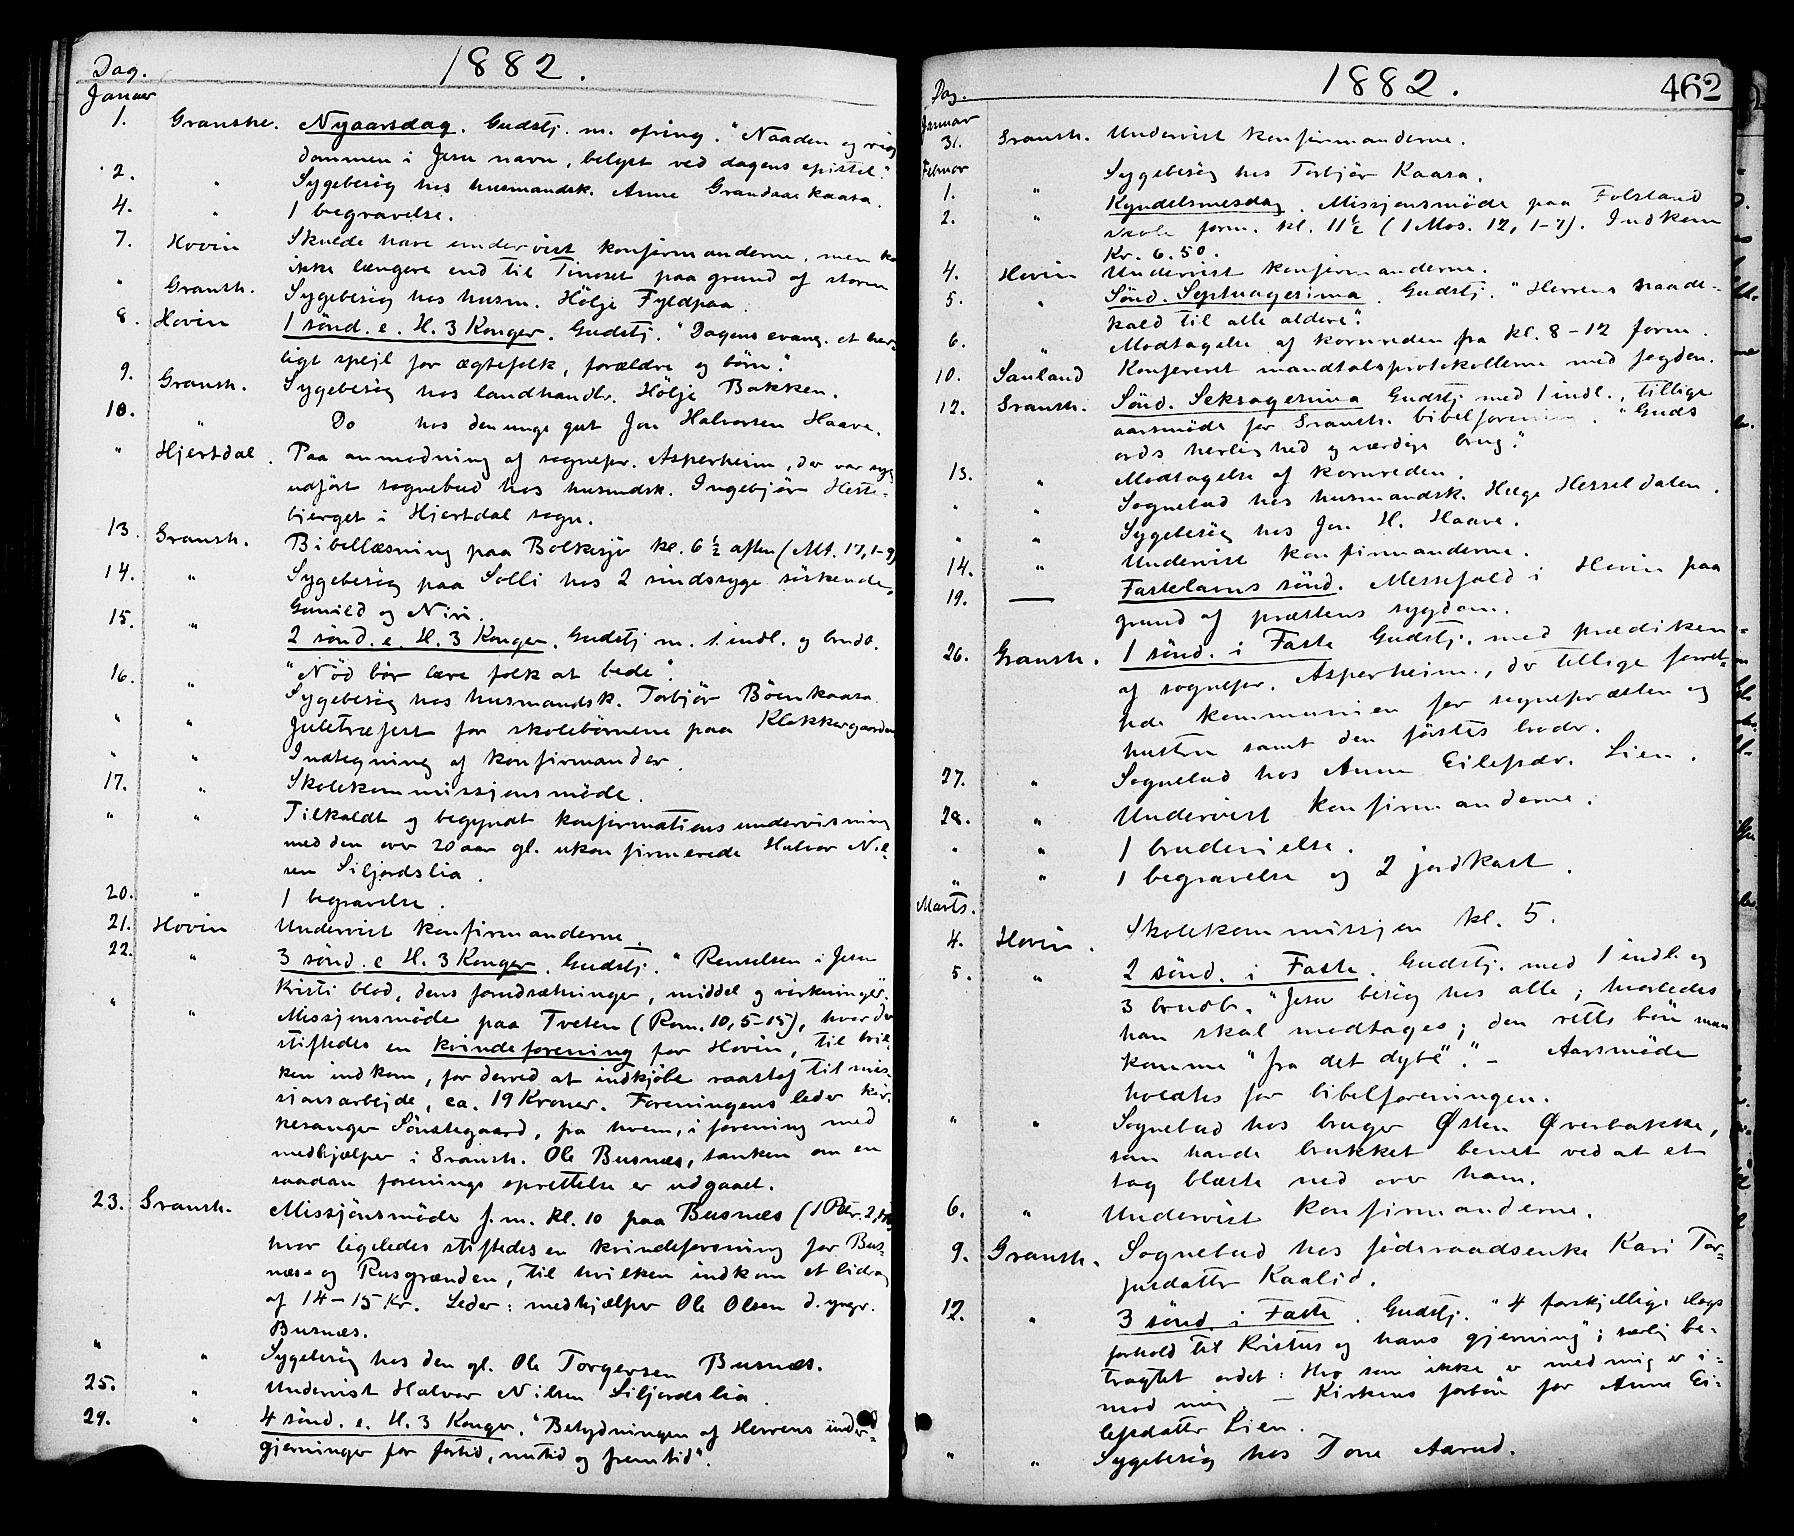 1882.
Dag.
Januar
1. Granshe. Nyaarsdag. Gudstj. m. ofring. "Naaden og rig
dommen i Jesu navn, belyst ved dagens epistel".
2. " Sygebesög hos husmandsk. Anne Grandaakaasa.
4. " 1 begravelse.
7. Hovin Skulde have undervist konfirmanderne, men kom
ikke længere end til Tinoset paa grund af storm
" Gransh. Sygebesög hos husm. Hölje Fyldpaa.
8. Hovin 1 sönd. e. H. 3 Konger. Gudstj. "Dagens evang. et her-
ligt spejl for ægtefolk, forældre og börn".
9. Gransh. Sygebesög hos landhandlr. Hölje Bakken.
10. " Do hos den unge gut Jon Halvorsen Haave.
" Hjertdal. Paa anmodning af sognepr. Asperheim, der var syg
udfört sognebud hos husmdsk. Ingebjör Heste-
bjerget i Hjertdal sogn.
13. Gransh. Bibellæsning paa Bolkesjö kl. 6½ aften (Mt. 17, 1-9)
14. " Sygebesög paa Solli hos 2 sindssyge söskende,
Gunild og Niri.
15. " 2 sönd. e. H. 3 Konger. Gudstj m. 1 indl. og brudv.
"Nød bör lære folk at bede".
16. " Sygebesög hos husmandsk. Torbjör Böenkaasa
" " Juletræfest for skolebörnene paa Klokkergaarden
" " Indtegning af konfirmander.
17. " Skolekommissjonsmöde.
" " Tilkaldt og begyndt konfirmationsundervisning
med den over 20 aar gl. ukonfirmerede Halvor Nil-
sen Siljordslia.
20. " 1 begravelse.
21. Hovin Undervist konfirmanderne.
22. " 3 sönd. e H. 3 Konger. Gudstj. "Renselsen i Jesu
Kristi blod, dens forudsætninger, middel og virkninger.
" " Missjonsmöde paa Tveten (Rom. 10, 5-15), hvor der
stiftedes en kvindeforening for Hovin, til hvil-
ken indkom, for derved at indkjöbe raastof til mis-
sionsarbejde, ca. 19 Kroner. Foreningens leder kir-
kesanger Sönstegaard, fra hvem, i forening med
medhjælper i Gransh. Ole Busnæs, tanken om en
saadan forenings oprettelse er udgaaet.
23. Gransh. Missjonsmöde f.m. kl. 10 paa Busnæs (1 Petr. 2,
hvor ligeledes stiftedes en kvindeforening for Bus-
næs- og Rusgrænden, til hvilken indkom et bidrag
af 14-15 Kr. Leder: medhjælper Ole Olsen d. yngr.
Busnæs.
" " Sygebesög hos den gl. Ole Torgersen Busnæs.
25. " Undervist Halvor Nilsen Siljordslia.
29. " 4 sönd. e. H. 3 Konger. "Betydningen af Herrens under-
gjerninger for fortid, nutid og fremtid".
1882.
462
Dag.
Januar
31. Gransh. Undervist konfirmanderne.
Februar
1. " Sygebesög hos Torbjör Kaasa.
2. " Kyndelsmesdag. Missjonsmöde paa Folsland
skole form. kl. 11½ (1 Mos. 12, 1-7). Indkom
Kr. 6.50.
4. Hovin Undervist konfirmanderne.
5. " Sönd. Septuagesima. Gudstj. "Herrens naade-
kald til alle aldere".
6. " Modtagelse af kornreden fra kl. 8-12 form.
10. Sauland Konfereret mandtalsprotokollerne med fogden.
12. Gransh. Sönd. Seksagesima Gudstj med 1 indl., tillige
aarsmöde for Gransh. bibelforening. "Guds
ords herlighed og værdige brug".
13. " Modtagelse af kornreden.
" " Sognebud hos husmandsk. Helge Hesseldalen.
" " Sygebesög hos Jon H. Haave.
14. " Undervist konfirmanderne.
19. — Fastelavns sönd. Messefald i Hovin paa
grund af præstens sygdom.
26. Gransh. 1 sönd. i Faste Gudstj. med prædiken
af sognepr. Asperheim, der tillige forret-
tede kommunion for sognepræsten og
hustru samt den förstes broder.
27. " Sognebud hos Anne Eilefsdr. Lien.
28. " Undervist konfirmanderne.
" " 1 brudevielse.
" " 1 begravelse og 2 jordkast.
Marts.
4. Hovin. Skolekommissjon kl. 5.
5. " 2 sönd. i Faste. Gudstj. med 1 indl. og
3 brudv. "Jesu besög hos alle; hvorledes
han skal modtages; den rette bön maa
komme "fra det dybe"." — Aarsmöde
holdtes for bibelforeningen.
" " Sognebud hos bruger Østen Øverbakke,
som havde brukket benet ved at et
tag blæste ned over ham.
6. " Undervist konfirmanderne.
9. Gransh. Sognebud hos föderaadsenke Kari Tor-
jusdatter Kaalid.
12. " 3 sönd. i Faste. Gudstj. "4 forskjellige slags
forhold til Kristus og hans gjerning"; særlig be-
tragtet ordet: Hvo som ikke er med mig er i-
mod mig. — Kirkens forbön for Anne Ei-
lefsdatter Lien.
" " Sygebesög hos Tone Aarud.